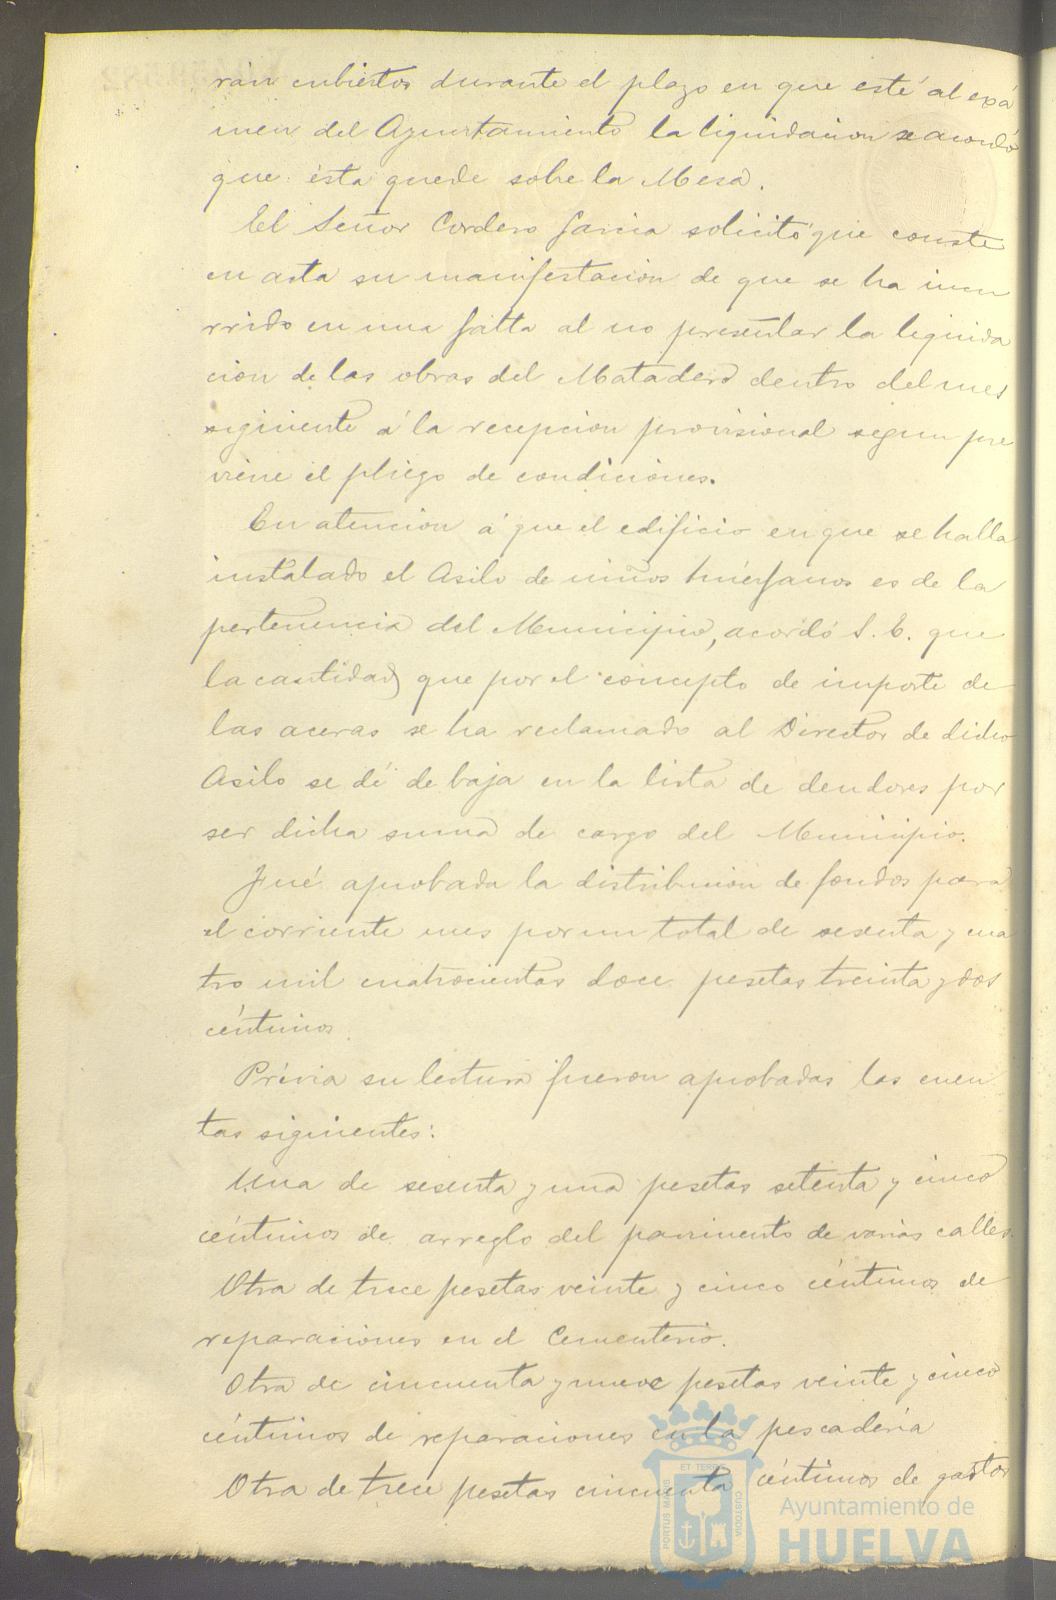 rán cubiertos durante el plazo en que esté al exá
men del Ayuntamiento la liquidacion se acordó
que ésta quede sobre la Mesa.
El Señor Cordero Garcia solicitó que conste
en acta su manifestacion de que se ha incu
rrido en una falta al no presentar la liquida
cion de las obras del Matadero dentro del mes
siguiente á la recepcion provisional segun pre
viene el pliego de condiciones.
En atencion á que el edificio en que se halla
instalado el Asilo de niños huérfanos es de la
pertenencia del Municipio, acordó S. E. que
la cantidad que por el concepto de importe de
las aceras se ha reclamado al Director de dicho
Asilo se dé de baja en la lista de deudores por
ser dicha suma de cargo del Municipio.
Fué aprobada la distribucion de fondos para
el corriente mes por un total de sesenta y cua
tro mil cuatrocientas doce pesetas treinta y dos
céntimos
Prévia su lectura fueron aprobadas las cuen
tas siguientes:
Una de sesenta y una pesetas setenta y cinco
céntimos de arreglo del pavimento de varias calles.
Otra de trece pesetas veinte y cinco céntimos de
reparaciones en el Cementerio.
Otra de cincuenta y nueve pesetas veinte y cinco
céntimos de reparaciones en la pescadería
Otra de trece pesetas cincuenta céntimos de gastos
PORTUS MARIS
ET TERRE
CUSTODIA
Ayuntamiento de
HUELVA